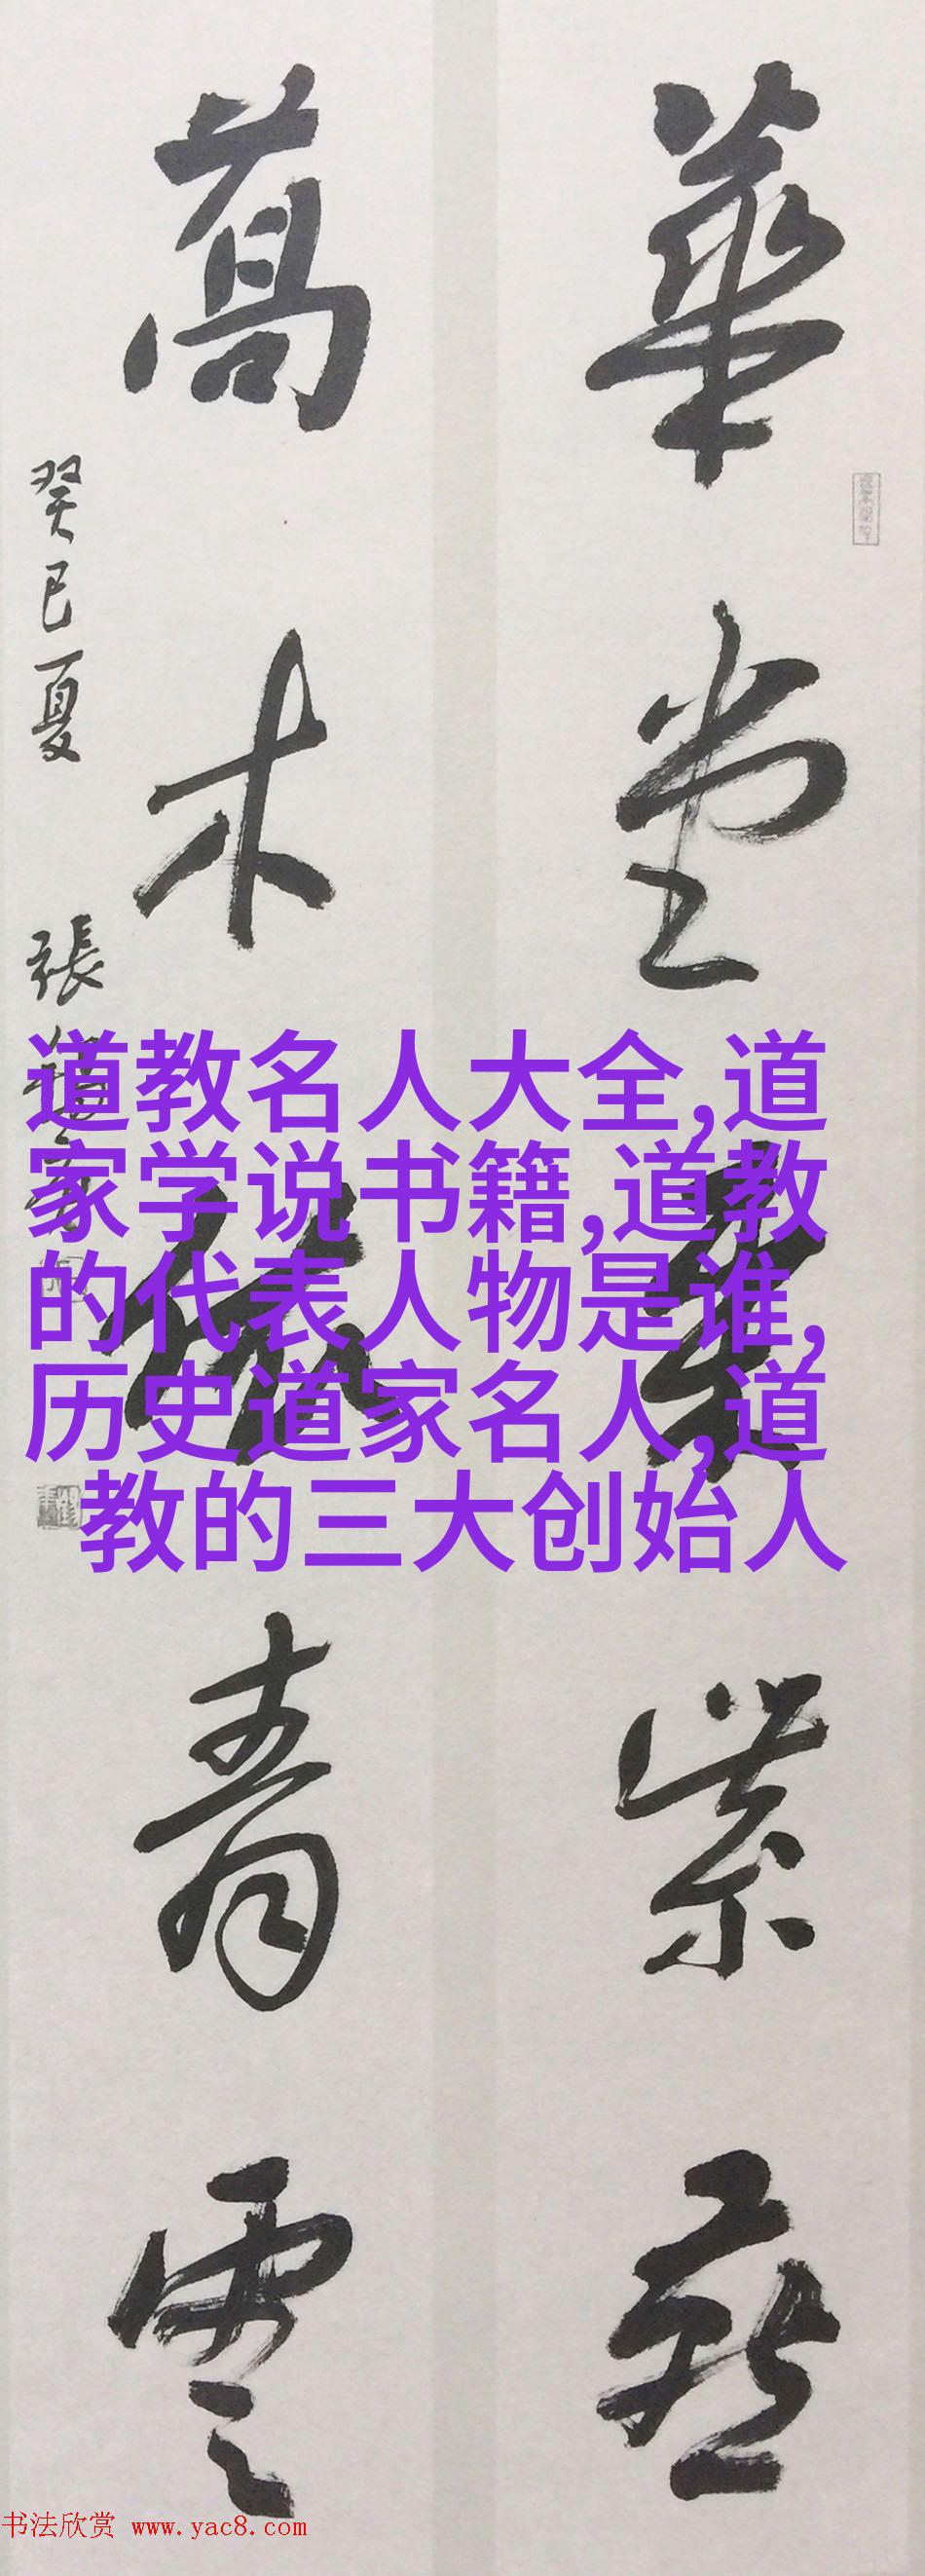 華堂紫
萬木青雲
癸巳夏 張
道教名人大全,道
家学说书籍,道教
的代表人物是谁,
历史道家名人,道
教的三大创始人
书法欣赏 www.yac8.com